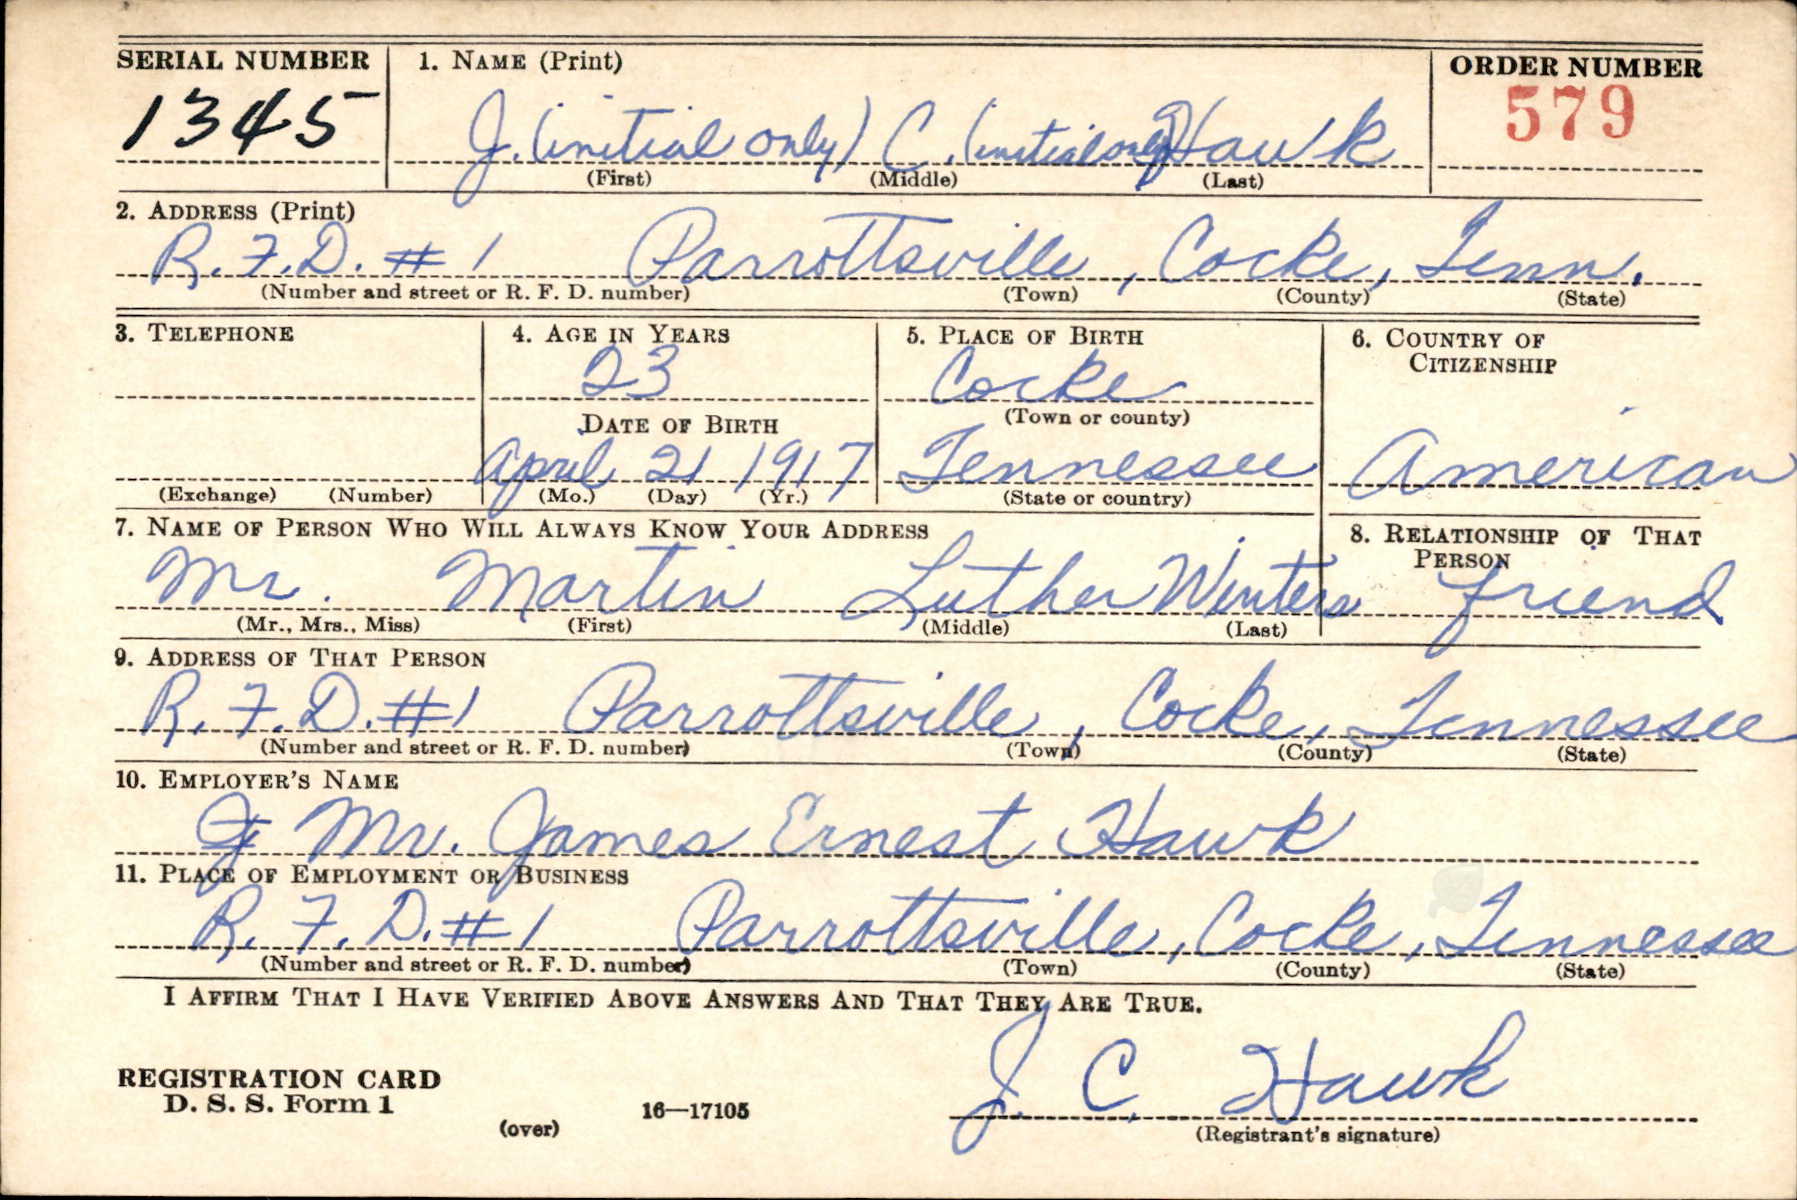 SERIAL NUMBER 1. NAME (Print) ORDER NUMBER
1345 J. (initial only) C. (initial only) Hawk 579
(First) (Middle) (Last)
2. ADDRESS (Print)
R.F.D. #1 Parrottsville, Cocke, Tenn.
(Number and street or R. F. D. number) (Town) (County) (State)
3. TELEPHONE 4. AGE IN YEARS 5. PLACE OF BIRTH 6. COUNTRY OF
CITIZENSHIP
23 Cocke
DATE OF BIRTH (Town or county)
April 21 1917 Tennessee American
(Exchange) (Number) (Mo.) (Day) (Yr.) (State or country)
7. NAME OF PERSON WHO WILL ALWAYS KNOW YOUR ADDRESS 8. RELATIONSHIP OF THAT
PERSON
Mr. Martin Luther Winters friend
(Mr., Mrs., Miss) (First) (Middle) (Last)
9. ADDRESS OF THAT PERSON
R.F.D. #1 Parrottsville, Cocke, Tennessee
(Number and street or R. F. D. number) (Town) (County) (State)
10. EMPLOYER'S NAME
Mr. James Ernest Hawk
11. PLACE OF EMPLOYMENT OR BUSINESS
R.F.D. #1 Parrottsville, Cocke, Tennessee
(Number and street or R. F. D. number) (Town) (County) (State)
I AFFIRM THAT I HAVE VERIFIED ABOVE ANSWERS AND THAT THEY ARE TRUE.
J. C. Hawk
REGISTRATION CARD
D. S. S. Form 1 16—17105
(over) (Registrant's signature)